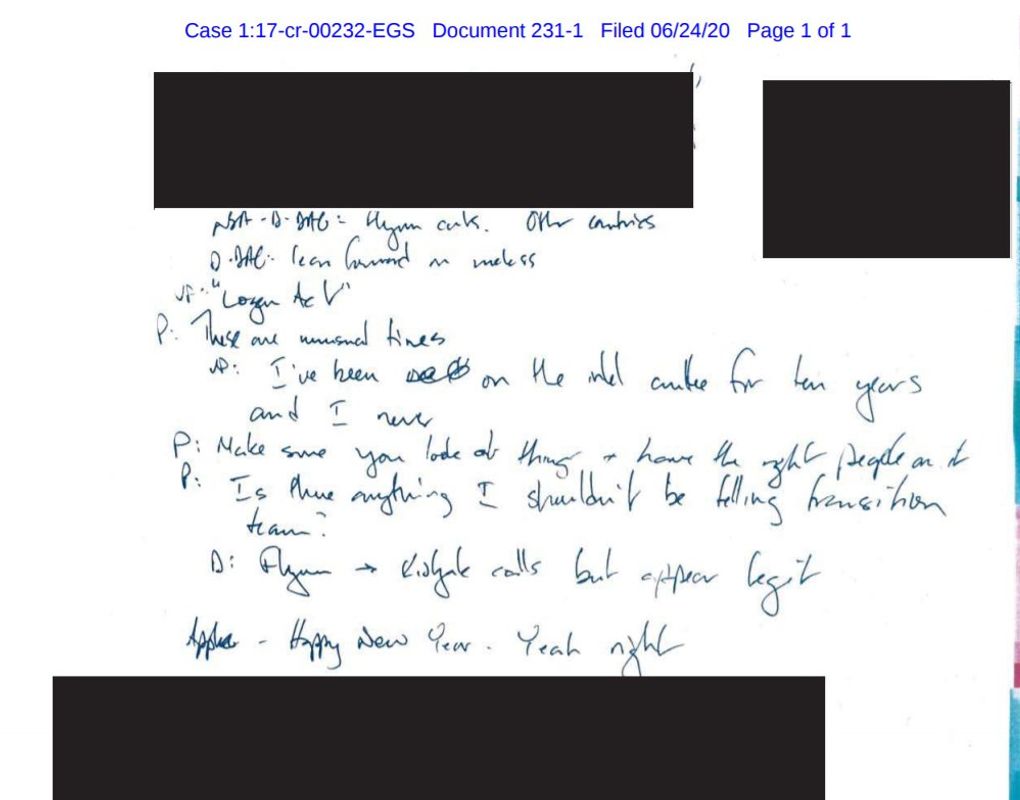 Case 1:17-cr-00232-EGS Document 231-1 Filed 06/24/20 Page 1 of 1
NSA-D-DAG: Flynn cuts. Other countries
D-DAG: lean forward on
VP: "Logan Act"
P: These are unusual times
VP: I've been on the intel cmtee for ten years
and I never
P: Make sure you look at things + have the right people on it
P: Is there anything I shouldn't be telling transition
team?
D: Flynn → Kislyak calls but appear legit
- Happy New Year. Yeah right